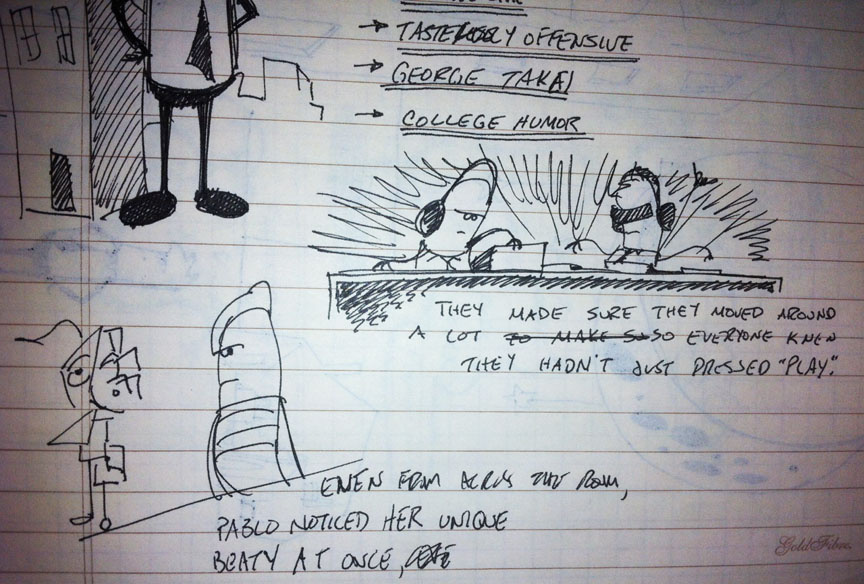 → TASTEFULLY OFFENSIVE
→ GEORGE TAKAI
→ COLLEGE HUMOR
THEY MADE SURE THEY MOVED AROUND
A LOT TO MAKE S SO EVERYONE KNEW
THEY HADN'T JUST PRESSED "PLAY."
EVEN FROM ACROSS THE ROOM,
PABLO NOTICED HER UNIQUE
BEATY AT ONCE,
Gold Fibre